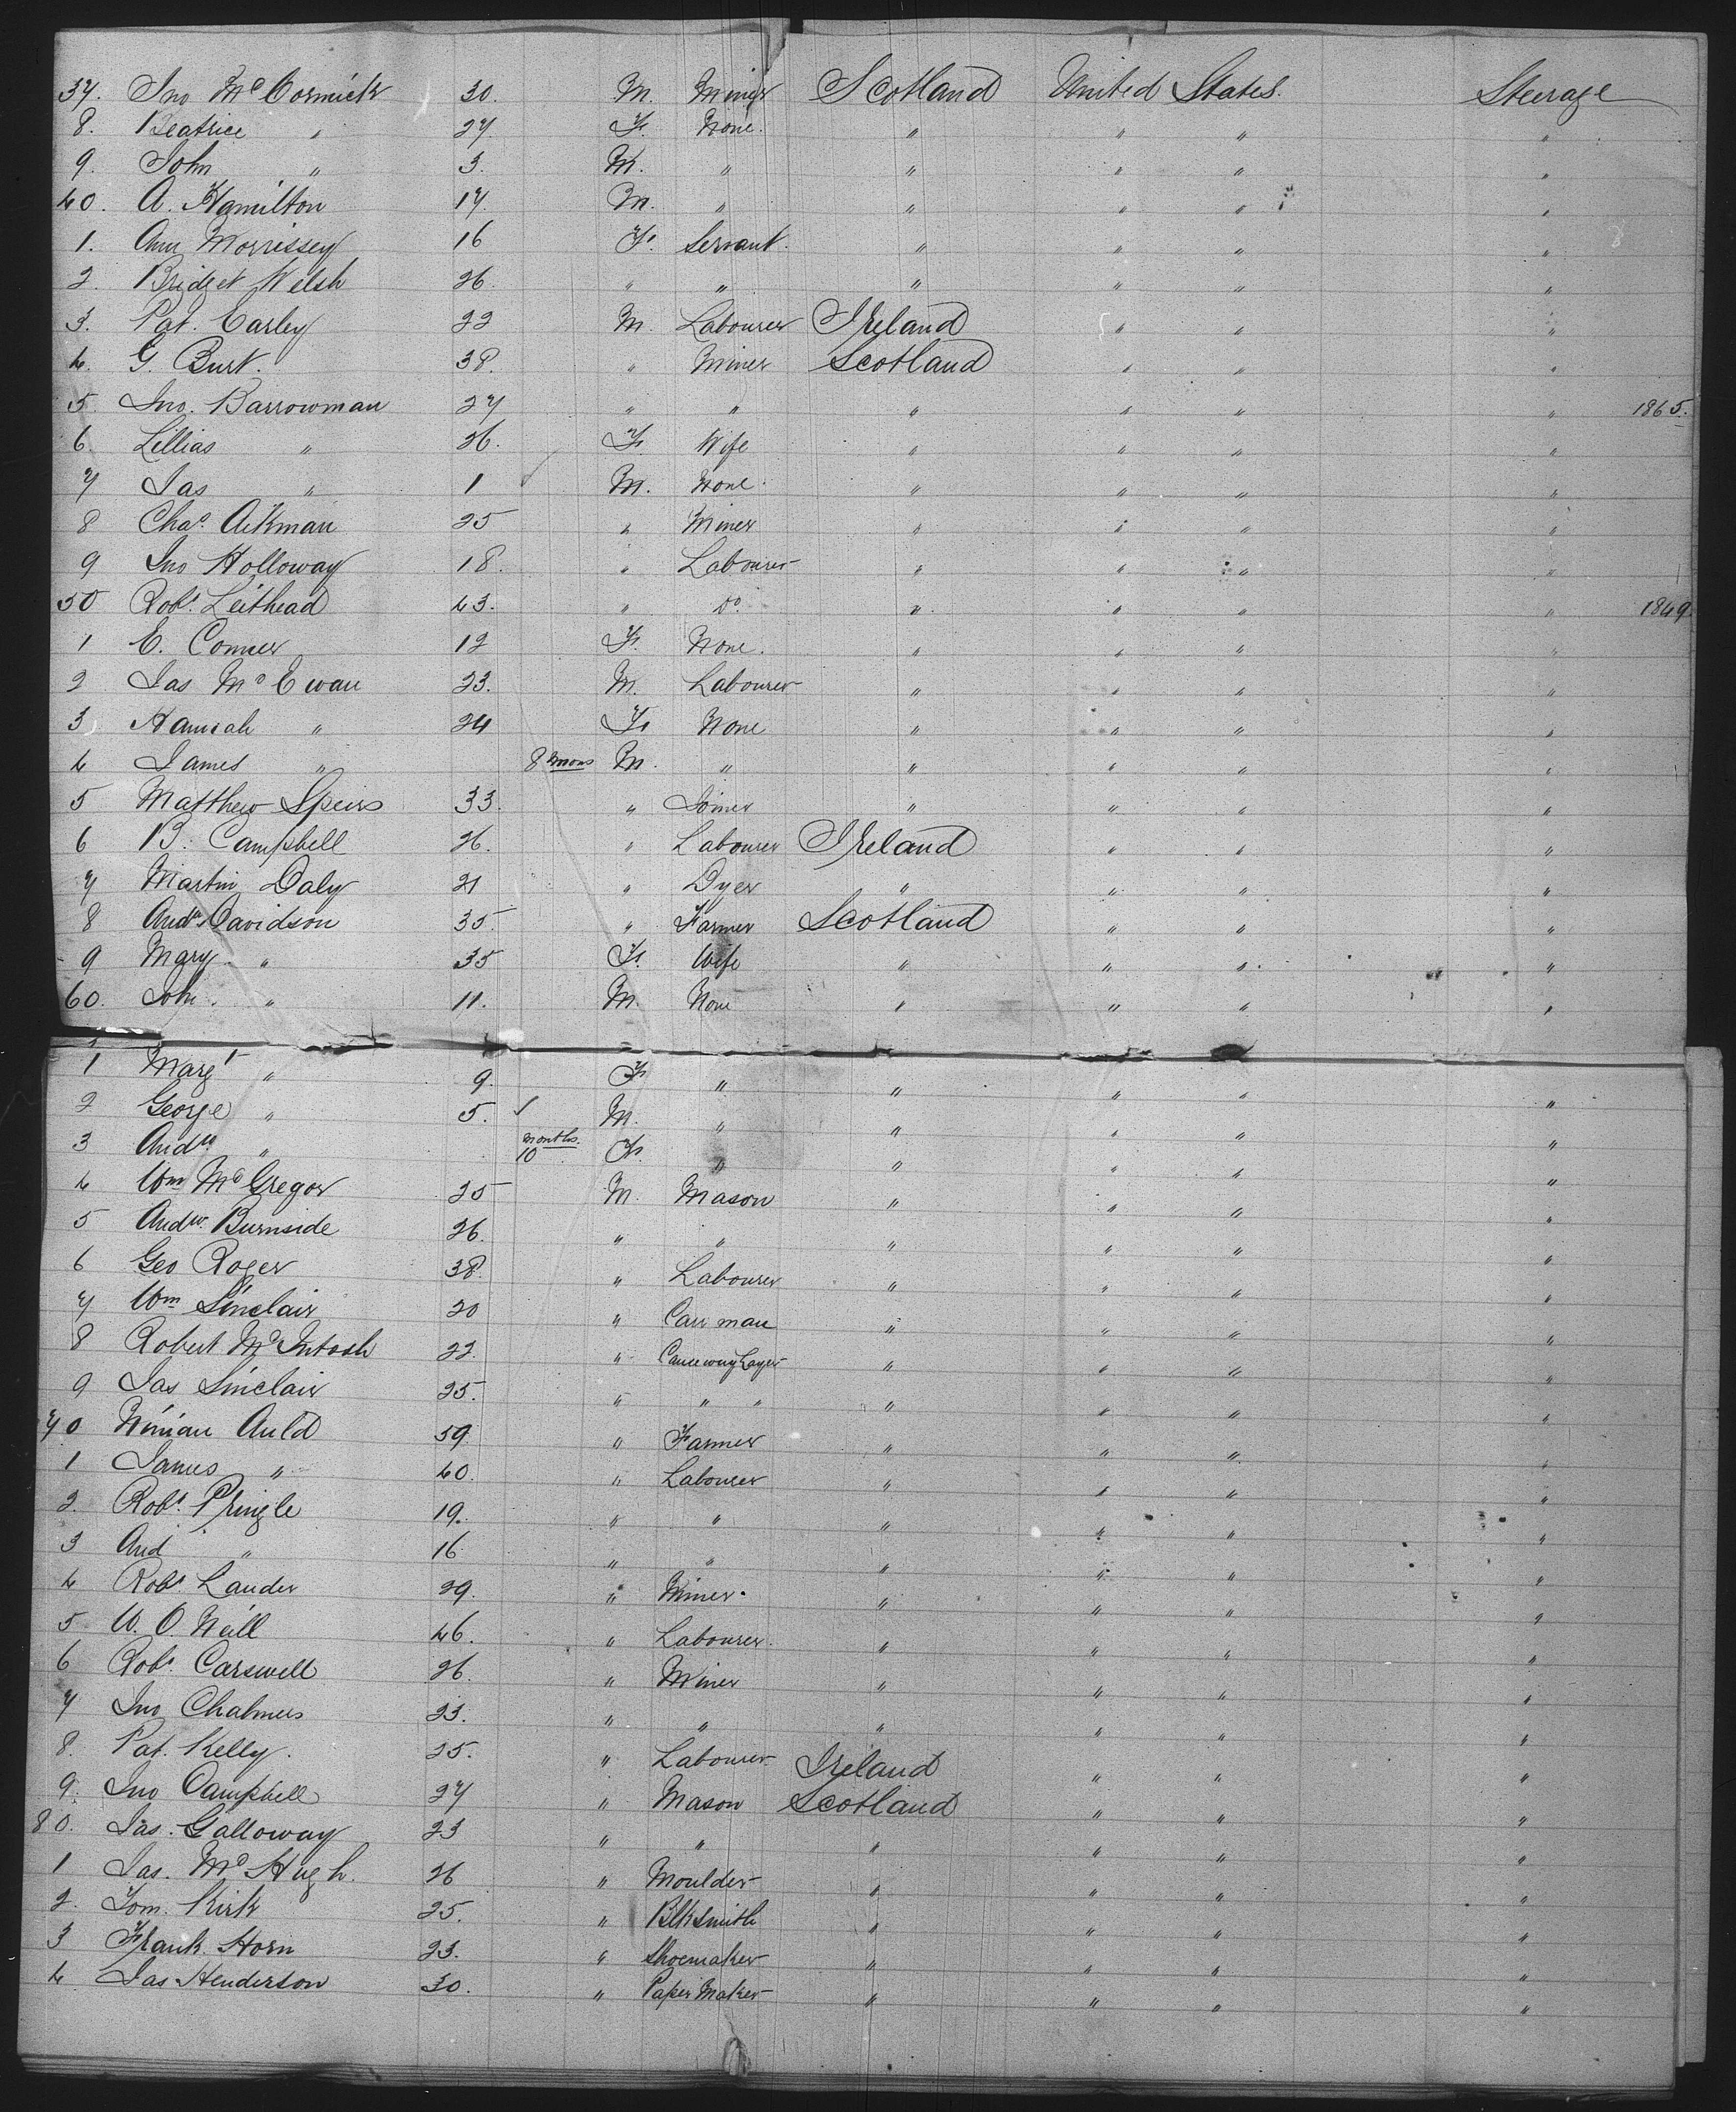 37. Jno McCormick 30. M. Miner Scotland United States. Steerage
8. Beatrice " 27. F. None. " " " "
9. John " 3. M. " " " " "
40. A. Hamilton 17. M. " " " " "
1. Ann Morrissey 16 F. Servant. " " " "
2. Bridget Welsh 26. " " " " " "
3. Pat. Earley 22 M. Labourer Ireland " " "
4. G. Burt. 38. " Miner Scotland " " "
5. Jno. Barrowman 27 " " " " " " 1865.
6. Lillias " 26. F. Wife " " " "
7 Jas " 1 M. None. " " " "
8 Chas. Aikman 25 " Miner " " " "
9 Jno Holloway 18. " Labourer " " " "
50 Robt. Leithead 43. " Do. " " " " 1849
1 E. Comer 12 F. None. " " " "
2 Jas McEwan 23. M. Labourer " " " "
3 Hannah " 24 F. None " " " "
4 James " 8 mons M. " " " " "
5 Matthew Speirs 33. " Joiner " " " "
6 B. Campbell 26. " Labourer Ireland " " "
7 Martin Daly 21 " Dyer " " " "
8 Andw Davidson 35. " Farmer Scotland " " "
9 Mary " 35 F. Wife " " " "
60. John. " 11. M. None " " " "
1 Margt " 9. F. " " " " "
2 George " 5. M. " " " " "
3 Andw " months. 10 F. " " " " "
4 Wm McGregor 25 M. Mason " " " "
5 Andw. Burnside 26. " " " " " "
6 Geo Roger 38. " Labourer " " " "
7 Wm Sinclair 20 " Carrman " " " "
8 Robert McIntosh 22. " Causeway Layer " " " "
9 Jas Sinclair 25. " " " " " " "
70 Ninian Auld 59 " Farmer " " " "
1 James " 40. " Labourer " " " "
2. Robt. Pringle 19. " " " " " "
3 And " 16 " " " " " "
4 Robt. Lauder 29. " Miner. " " " "
5 W. O. Neill 46. " Labourer. " " " "
6 Robt. Carswell 26. " Miner " " " "
7 Jno Chalmers 23. " " " " " "
8. Pat. Kelly. 25. " Labourer Ireland " " "
9. Jno Campbell 27 " Mason Scotland " " "
80. Jas. Galloway 23 " " " " " "
1 Jas. McHugh. 26 " Moulder " " " "
2. Tom. Kirk 25. " Blksmith " " " "
3 Frank Horn 23. " Shoemaker " " " "
4 Jas Henderson 30. " Paper Maker " " " "